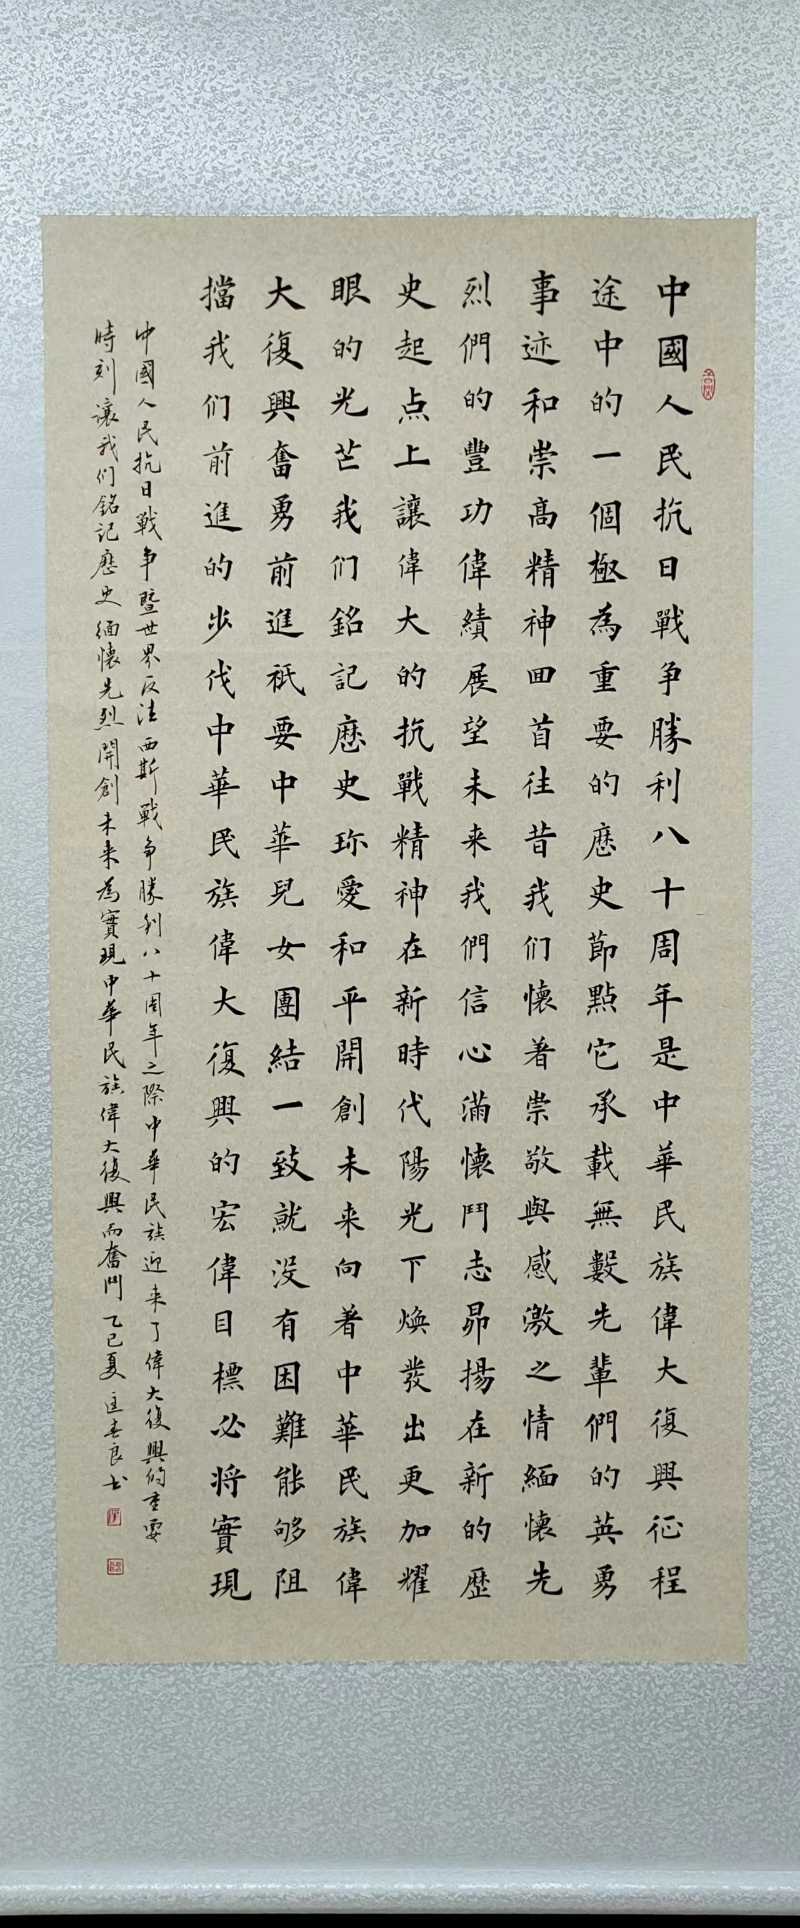 中國人民抗日戰争勝利八十周年是中華民族偉大復興征程
途中的一個極為重要的歷史節點它承載無數先輩們的英勇
事迹和崇高精神回首往昔我们懷着崇敬與感激之情緬懷先
烈們的豐功偉績展望未来我們信心滿懷鬥志昂揚在新的歷
史起点上讓偉大的抗戰精神在新時代陽光下焕發出更加耀
眼的光芒我们銘記歷史珎愛和平開創未来向著中華民族偉
大復興奮勇前進衹要中華兒女團結一致就没有困難能够阻
擋我们前進的步伐中華民族偉大復興的宏偉目標必将實現
中國人民抗日戰争暨世界反法西斯戰争勝利八十周年之際中華民族迎来了偉大復興的重要
時刻讓我们銘記歷史緬懷先烈開創未来為實現中華民族偉大復興而奮鬥乙巳夏匡春良书